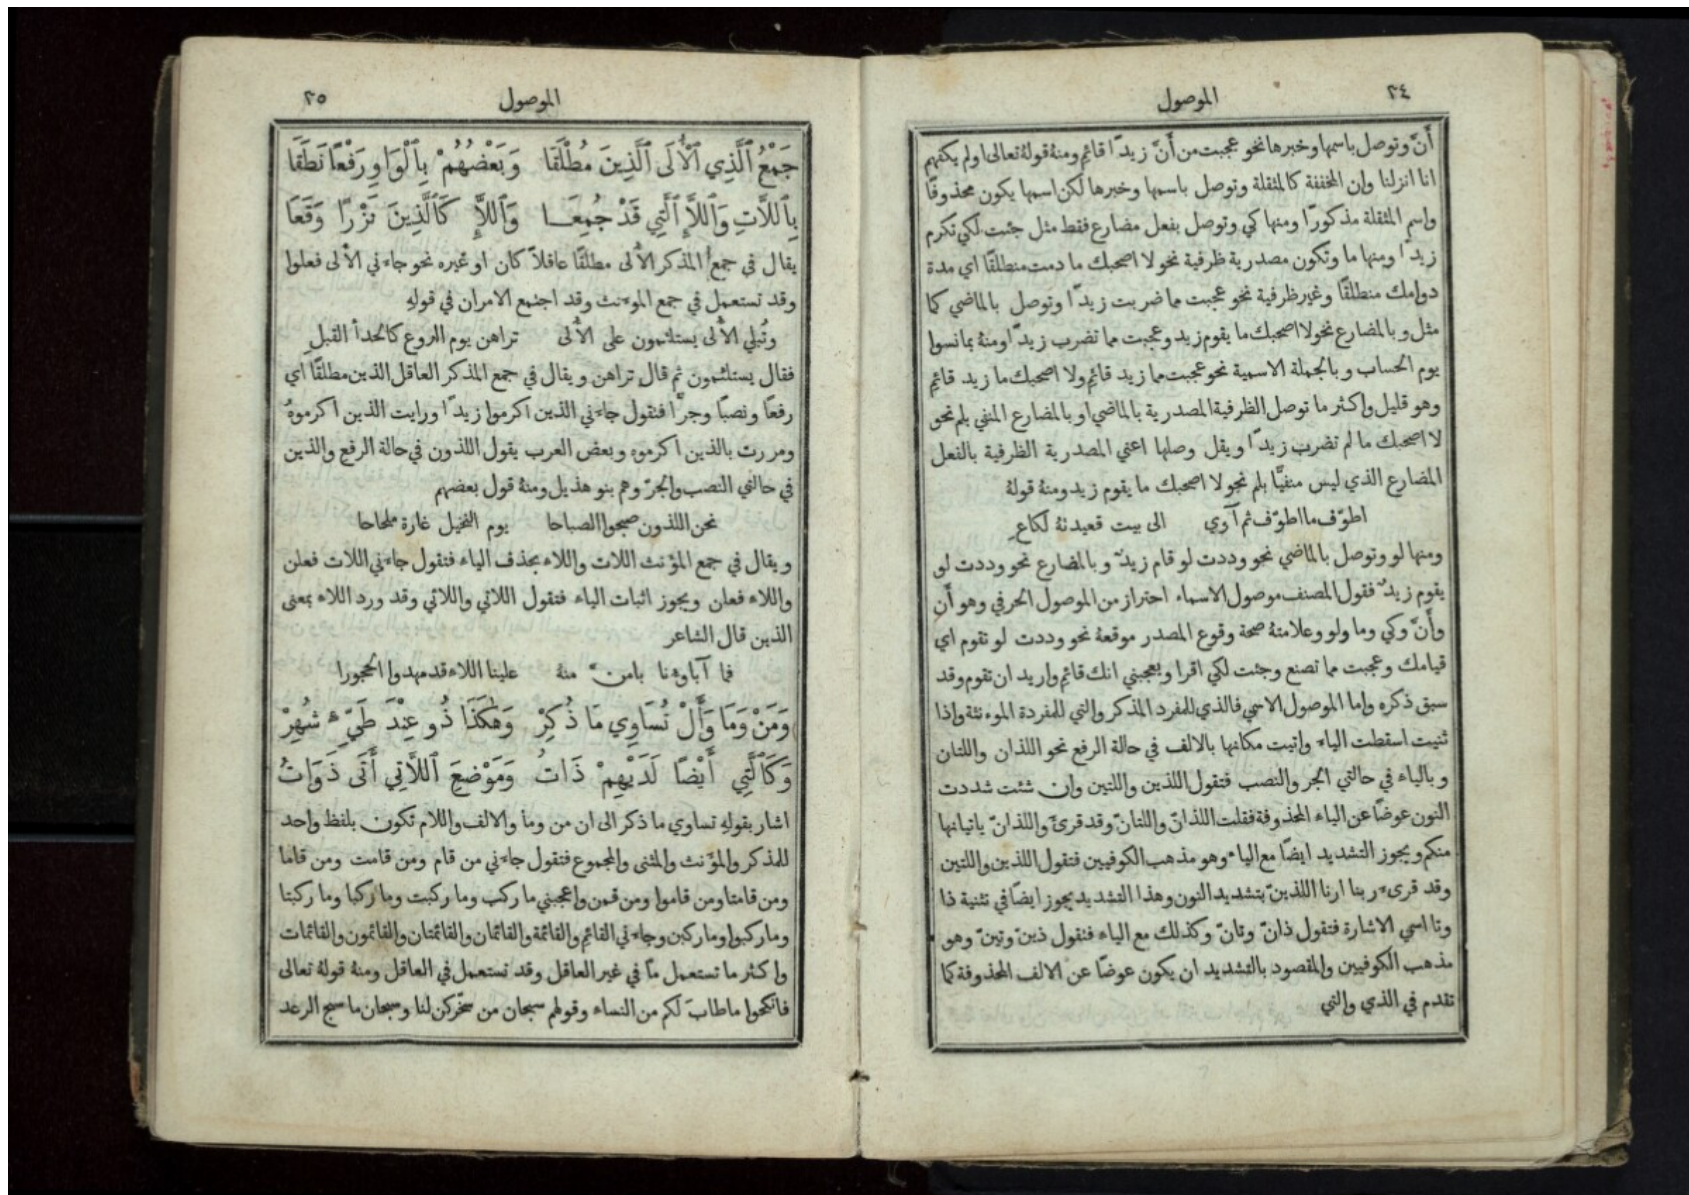 ٢٤
الموصول
أَنَّ وتوصل باسمها وخبرها نحو عجبت من أَنَّ زيدًا قائم ومنهُ قولهُ تعالى اولم يكفهم
انا انزلنا وإن المخففة كالمثقلة وتوصل باسمها وخبرها لكن اسمها يكون محذوفًا
واسم المثقلة مذكورًا ومنها كي وتوصل بفعل مضارع فقط مثل جئت لكي تكرم
زيدًا ومنها ما وتكون مصدرية ظرفية نحو لا اصحبك ما دمت منطلقًا اي مدة
دوامك منطلقًا وغير ظرفية نحو عجبت مما ضربت زيدًا وتوصل بالماضي كما
مثل وبالمضارع نحو لا اصحبك ما يقوم زيد وعجبت مما تضرب زيدًا ومنهُ بما نسوا
يوم الحساب وبالجملة الاسمية نحو عجبت مما زيد قائم ولا اصحبك ما زيد قائم
وهو قليل واكثر ما توصل الظرفية المصدرية بالماضي او بالمضارع المنفي بلم نحو
لا اصحبك ما لم تضرب زيدًا ويقل وصلها اعني المصدرية الظرفية بالفعل
المضارع الذي ليس منفيًّا بلم نحو لا اصحبك ما يقوم زيد ومنهُ قولهُ
اطوّف ما اطوّف ثم آوي الى بيت قعيدتهُ لكاعِ
ومنها لو وتوصل بالماضي نحو وددت لو قام زيدٌ وبالمضارع نحو وددت لو
يقوم زيدٌ فقول المصنف موصول الاسماء احتراز من الموصول الحرفي وهو أَن
وأَنَّ وكي وما ولو وعلامتهُ صحة وقوع المصدر موقعهُ نحو وددت لو تقوم اي
قيامك وعجبت مما تصنع وجئت لكي اقرا ويعجبني انك قائم واريد ان تقوم وقد
سبق ذكره واما الموصول الاسمي فالذي للمفرد المذكر والتي للمفردة الموءنثة واذا
ثنيت اسقطت الياء واتيت مكانها بالالف في حالة الرفع نحو اللذان واللتان
وبالياء في حالتي الجر والنصب فتقول اللذين واللتين وان شئت شددت
النون عوضًا عن الياء المحذوفة فقلت اللذانّ واللتانّ وقد قرئَ واللذانّ ياتيانها
منكم ويجوز التشديد ايضًا مع الياء وهو مذهب الكوفيين فتقول اللذين واللتين
وقد قرىء ربنا ارنا اللذينّ بتشديد النون وهذا التشديد يجوز ايضًا في تثنية ذا
وتا اسمي الاشارة فتقول ذانّ وتانّ وكذلك مع الياء فتقول ذينّ وتينّ وهو
مذهب الكوفيين والمقصود بالتشديد ان يكون عوضًا عن الالف المحذوفة كما
تقدم في الذي والتي
الموصول
٢٥
جَمْعُ ٱلَّذِي ٱلْأُلَى ٱلَّذِينَ مُطْلَقَا وَبَعْضُهُمْ بِٱلْوَاوِ رَفْعًا نَطَقَا
بِٱللَّاتِ وَٱللَّاءِ ٱلَّتِي قَدْ جُمِعَا وَٱللَّاءِ كَٱلَّذِينَ نَزْرًا وَقَعَا
يقال في جمع المذكر الأُلى مطلقًا عاقلاً كان او غيره نحو جاءني الأُلى فعلوا
وقد تستعمل في جمع الموءنث وقد اجتمع الامران في قولهِ
وتُبلي الأُلى يستلئمون على الأُلى تراهن يوم الروع كالحدأ القبلِ
فقال يستلئمون ثم قال تراهن ويقال في جمع المذكر العاقل الذين مطلقًا اي
رفعًا ونصبًا وجرًّا فتقول جاءني الذين اكرموا زيدًا ورايت الذين اكرموهُ
ومررت بالذين اكرموه وبعض العرب يقول اللذون في حالة الرفع والذين
في حالتي النصب والجرّ وهم بنو هذيل ومنهُ قول بعضهم
نحن اللذون صبحوا الصباحا يوم النخيل غارة ملحاحا
ويقال في جمع المؤنث اللات واللاء بحذف الياء فتقول جاءني اللات فعلن
واللاء فعلن ويجوز اثبات الياء فتقول اللاتي واللائي وقد ورد اللاء بمعنى
الذين قال الشاعر
فما آباوءنا بامنّ منهُ علينا اللاء قد مهدوا الحجورا
وَمَنْ وَمَا وَأَلْ تُسَاوِي مَا ذُكِرْ وَهٰكَذَا ذُو عِنْدَ طَيِّءٍ شُهِرْ
وَكَٱلَّتِي أَيْضًا لَدَيْهِمْ ذَاتُ وَمَوْضِعَ ٱللَّاتِي أَتَى ذَوَاتُ
اشار بقولهِ تساوي ما ذكر الى ان من وما والالف واللام تكون بلفظ واحد
للمذكر والمؤنث والمثنى والمجموع فتقول جاءني من قام ومن قامت ومن قاما
ومن قامتا ومن قاموا ومن قمن واعجبني ما ركب وما ركبت وما ركبا وما ركبتا
وما ركبوا وما ركبن وجاءني القائم والقائمة والقائمان والقائمتان والقائمون والقائمات
واكثر ما تستعمل ما في غير العاقل وقد تستعمل في العاقل ومنهُ قولهُ تعالى
فانكحوا ما طابَ لكم من النساء وقولهم سبحان من سخّركن لنا وسبحان ما سبح الرعد